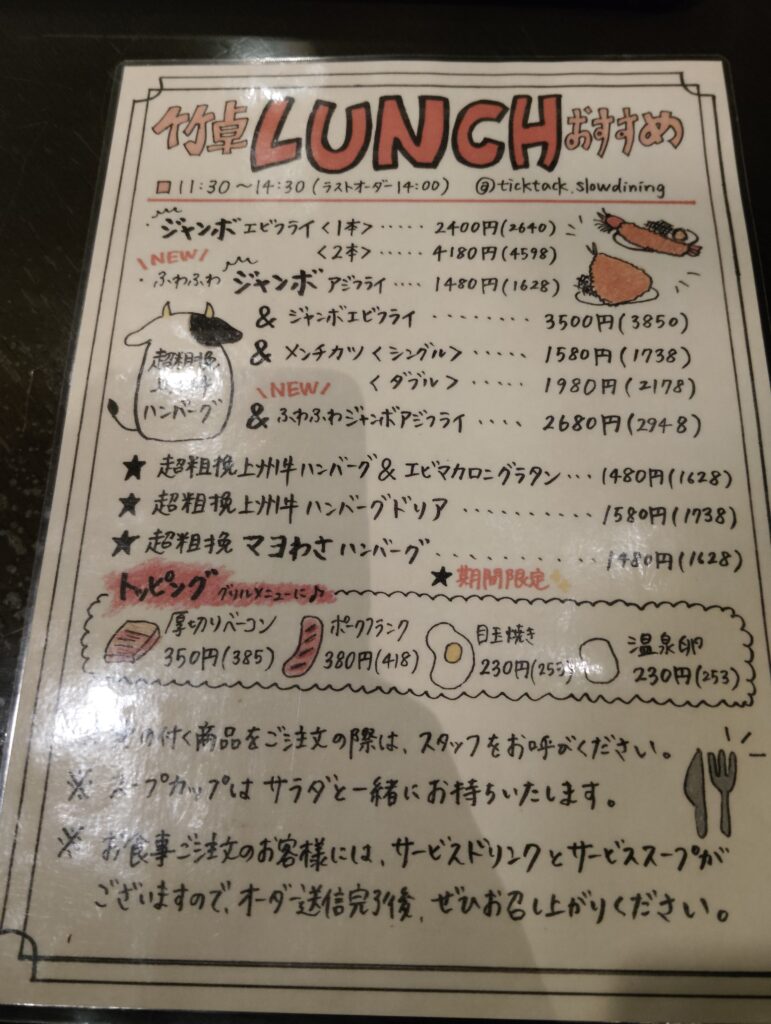 竹卓 LUNCH おすすめ
11:30〜14:30(ラストオーダー14:00) @ticktack.slowdining
ジャンボエビフライ〈1本〉····· 2400円(2640)
〈2本〉···· 4180円(4598)
NEW
ふわふわ ジャンボ アジフライ ···· 1480円(1628)
超粗挽
ハンバーグ
& ジャンボエビフライ ········ 3500円(3850)
& メンチカツ〈シングル〉······ 1580円(1738)
〈ダブル〉····· 1980円(2178)
NEW
& ふわふわジャンボアジフライ ···· 2680円(2948)
★ 超粗挽上州牛ハンバーグ&エビマカロニグラタン ··· 1480円(1628)
★ 超粗挽上州牛ハンバーグドリア ·········· 1580円(1738)
★ 超粗挽 マヨわさハンバーグ ·········· 1480円(1628)
★期間限定
トッピング グリルメニューに♪
厚切りベーコン
350円(385)
ポークフランク
380円(418)
目玉焼き
230円(253)
温泉卵
230円(253)
付く商品をご注文の際は、スタッフをお呼びください。
※ スープカップはサラダと一緒にお持ちいたします。
※ お食事ご注文のお客様には、サービスドリンクとサービススープが
ございますので、オーダー送信完了後、ぜひお召し上がりください。